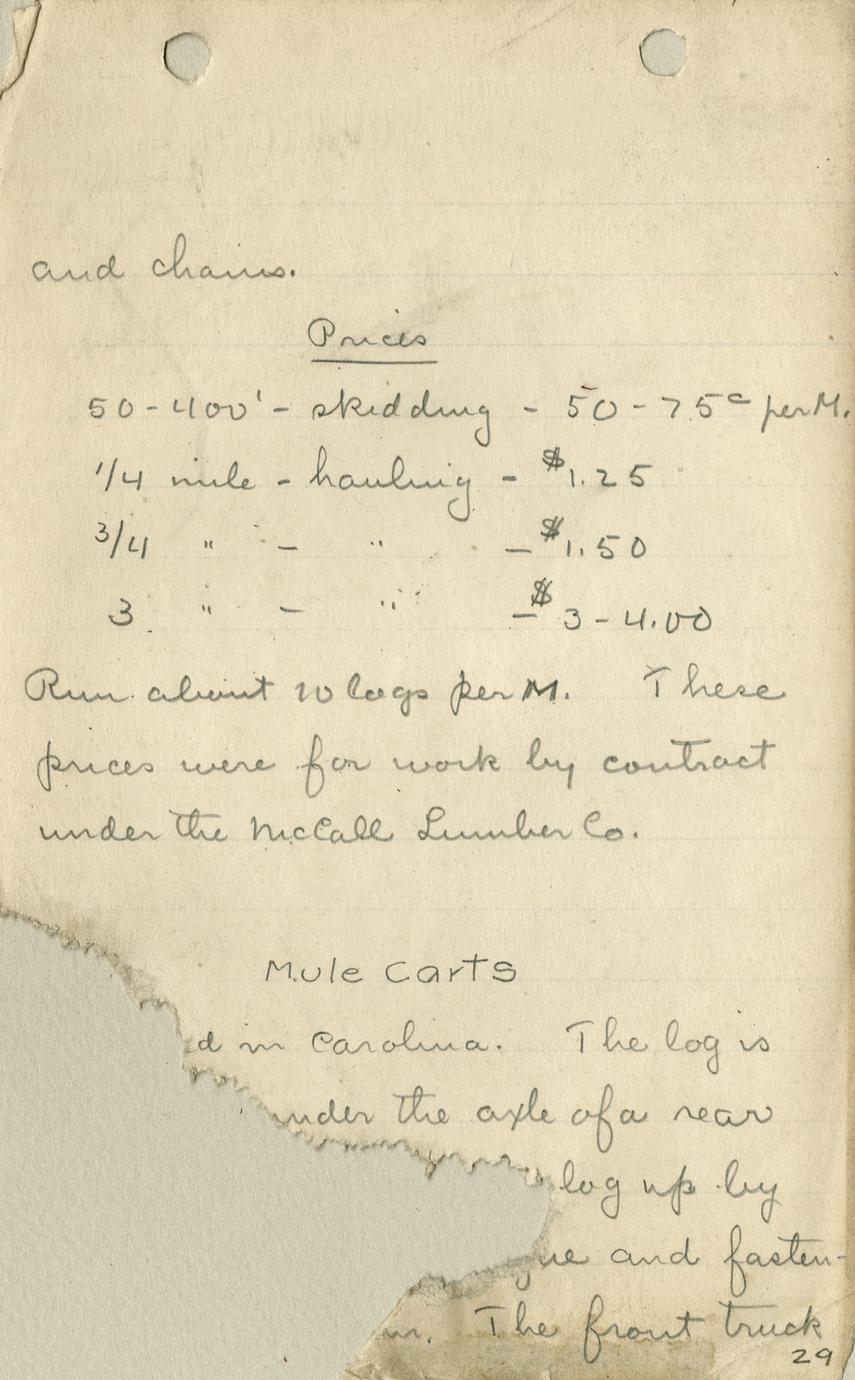 and chains.
Prices
50-400' - skidding - 50-75c per M.
1/4 mile - hauling - $1.25
3/4 " - " - $1.50
3 " - " - $3-4.00
Run about 10 logs per M. These
prices were for work by contract
under the McCall Lumber Co.
Mule Carts
d in Carolina. The log is
under the axle of a rear
log up by
gue and fasten-
The front truck
29